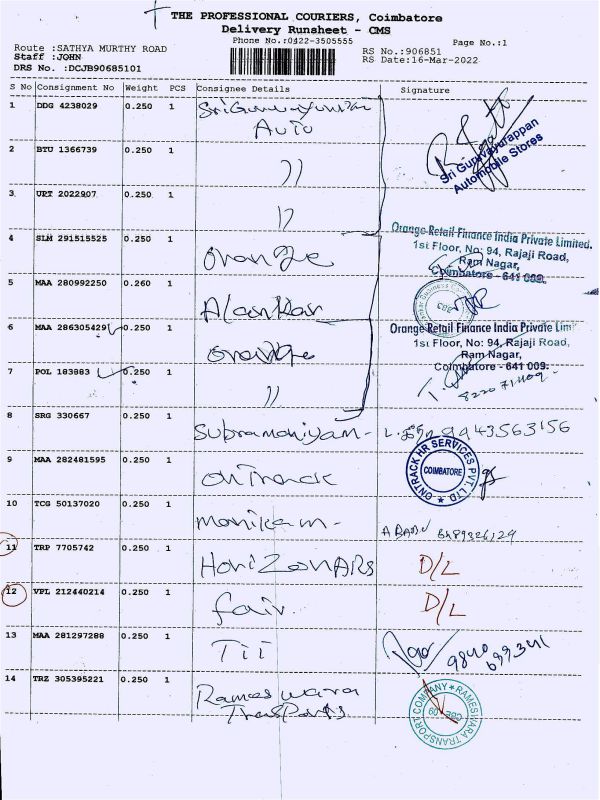 THE PROFESSIONAL COURIERS, Coimbatore
Delivery Runsheet - CMS
Phone No.:0422-3505555
Page No.:1
Route :SATHYA MURTHY ROAD
RS No.:906851
Staff :JOHN
RS Date:16-Mar-2022
DRS No. :DCJB90685101
S No Consignment No Weight PCS Consignee Details Signature
1 DDG 4238029 0.250 1
Auto
Sri Guruvayurappan
Automobile Stores
2 BTU 1366739 0.250 1 ))
3 UPT 2022907 0.250 1 ))
4 SLM 291515525 0.250 1 Orange
Orange Retail Finance India Private Limited.
1st Floor, No: 94, Rajaji Road,
Ram Nagar,
Coimbatore - 641 009.
5 MAA 280992250 0.260 1 Alankar
6 MAA 286305429 0.250 1 Orange
Orange Retail Finance India Private Lim
1st Floor, No: 94, Rajaji Road,
Ram Nagar,
Coimbatore - 641 009.
7 POL 183883 0.250 1 ))
8 SRG 330667 0.250 1 Subramaniyam - 9943563156
9 MAA 282481595 0.250 1 OnTrack
ONTRACK HR SERVICES PVT. LTD
COIMBATORE
10 TCG 50137020 0.250 1 Manikam -
11 TRP 7705742 0.250 1 Horizon ARS D/L
12 VPL 212440214 0.250 1 fair D/L
13 MAA 281297288 0.250 1 Tii
14 TRZ 305395221 0.250 1 Rameswara
RAMESWARA TRANSPORT COMPANY
CBE - 09